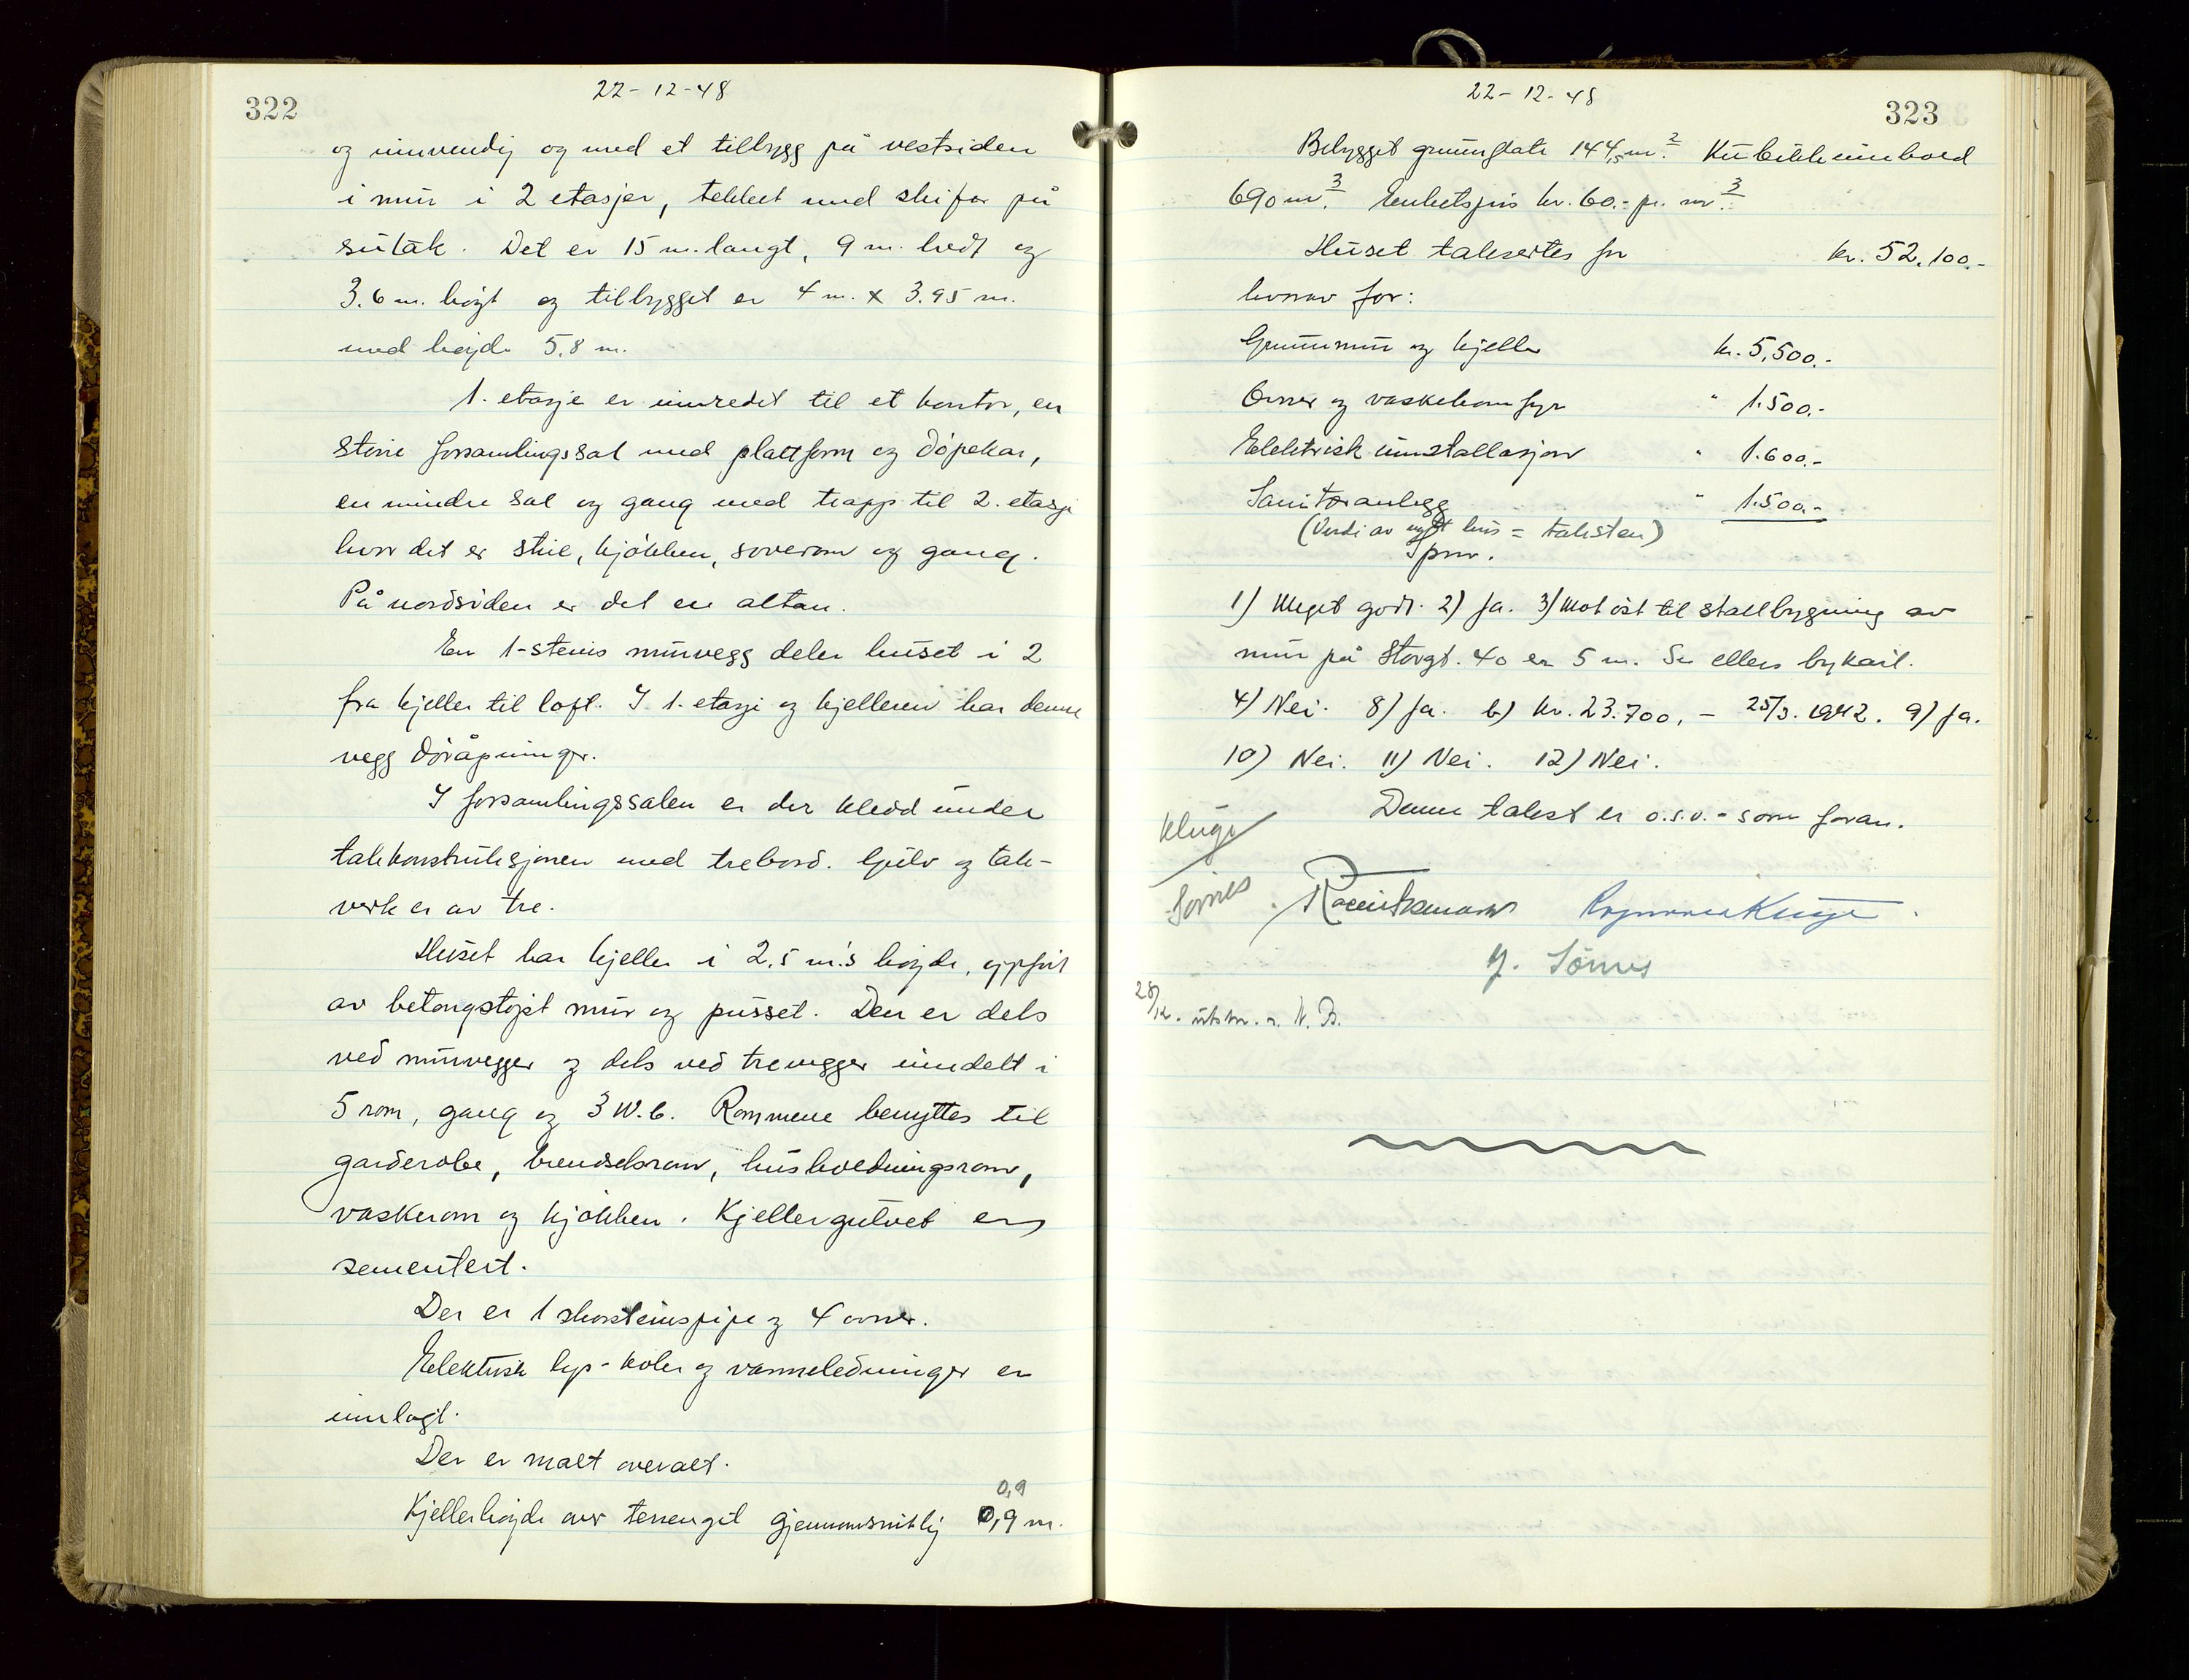 322
22-12-48
og innvendig og med et tilbygg på vestsiden
i mur i 2 etasjer, tekket med skifer på
sutak. Det er 15 m. langt, 9 m. bredt og
3.6 m. höyt og tilbygget er 4 m. x 3.95 m.
med höyde 5,8 m.
1. etasje er innredet til et kontor, en
större forsamlingssal med plattform og döpekar,
en mindre sal og gang med trapp til 2. etasje
hvor det er stue, kjökken, soverom og gang.
På nordsiden er det en altan.
En 1-steins murvegg deler huset i 2
fra kjeller til loft. I 1. etasje og kjelleren har denne
vegg döråpninger.
I forsamlingssalen er der kledd under
takkonstruksjonen med trebord. Gulv og tak-
verk er av tre.
Huset har kjeller i 2,5 m's höyde, oppfört
av betongstöpt mur og pusset. Den er dels
ved murvegger og dels ved trevegger inndelt i
5 rom, gang og 3 W.C. Rommene benyttes til
garderobe, brendselsrom, husholdningsrom,
vaskerom og kjökken. Kjellergulvet er
sementert.
Der er 1 skorsteinspipe og 4 ovner.
Elektrisk lys- koke og varmeledninger er
innlagt.
Der er malt overalt.
0,9
Kjellerhöyde over terrenget gjennomsnitlig 0,9 m.
22-12-48
323
Bebygget grunnflate 144,5 m². Kubikkinnhold
690 m³. Enhetspris kr. 60.- pr. m³.
Huset takseres for kr. 52.100.-
hvorav for:
Grunnmur og kjeller kr. 5.500.-
Ovner og vaskekomfyr " 1.500.-
Elektrisk innstallasjon " 1.600.-
Sanitæranlegg " 1.500.-
(Verdi av nytt hus = taksten)
Spm.
1) Meget godt. 2) Ja. 3) Mot öst til stallbygning av
mur på Storgt. 40 er 5 m. Se ellers bykart.
4) Nei. 8) Ja. b) kr. 23.700,- 25/3. 1942. 9) Ja.
10) Nei. 11) Nei. 12) Nei.
Denne takst er o.s.v. - som foran.
Kluge
Sörnes
Kluge
Sörnes
28/12. utskr. N. B.